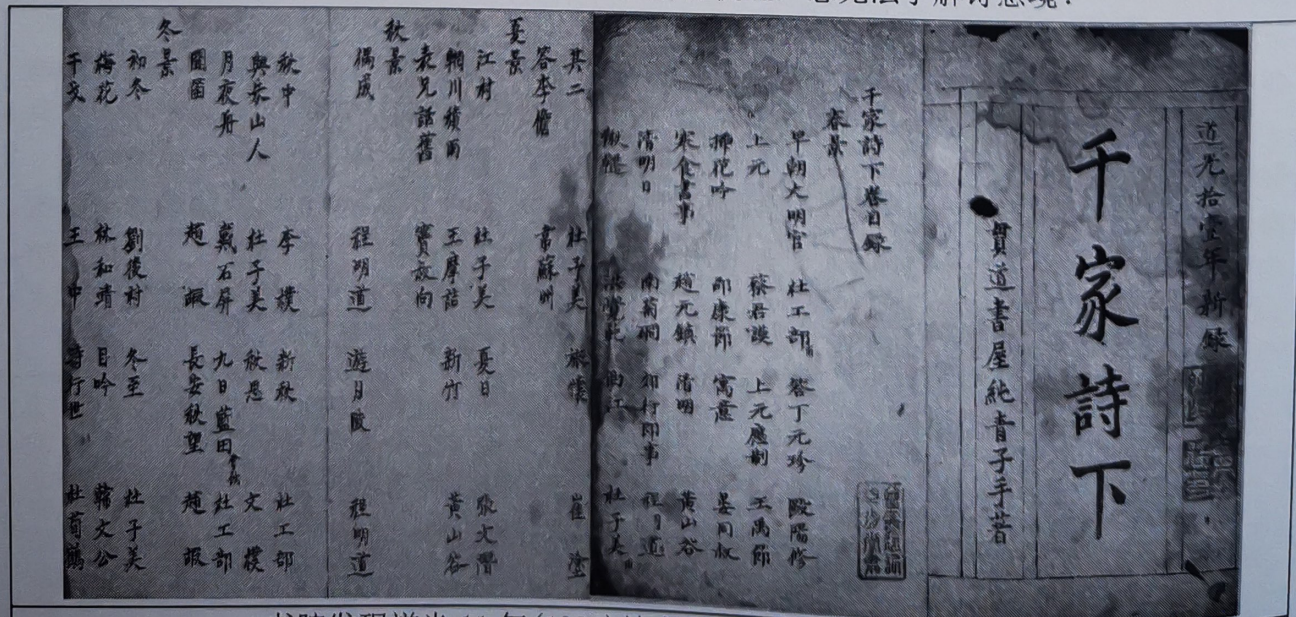 道光拾壹年新錄
千家詩下
貫道書屋純青子手著
千家詩下卷目錄
春景
早朝大明宮 杜工部 答丁元珍 歐陽修
上元 蔡君謨 上元應制 王禹節
插花吟 邵康節 寓意 晏同叔
寒食書事 趙元鎮 清明 黃山谷
清明日 南菊磵 郊行即事 程明道
鞦韆 洪覺範 曲江 杜子美
其二 杜子美 旅懷 崔塗
答李儋 韋蘇州
夏景
江村 杜子美 夏日 張文潛
輞川積雨 王摩詰 新竹 黃山谷
表兄話舊 竇叔向
秋景
偶成 程明道 遊月陂 程明道
秋中 李樸 新秋 杜工部
與朱山人 杜子美 秋思 文樸
月夜舟 戴石屏 九日藍田 杜工部
趙嘏 長安秋望 趙嘏
冬景
初冬 劉後村 冬至 杜子美
梅花 林和靖 自吟 韓文公
干戈 王中 時行世 杜荀鶴